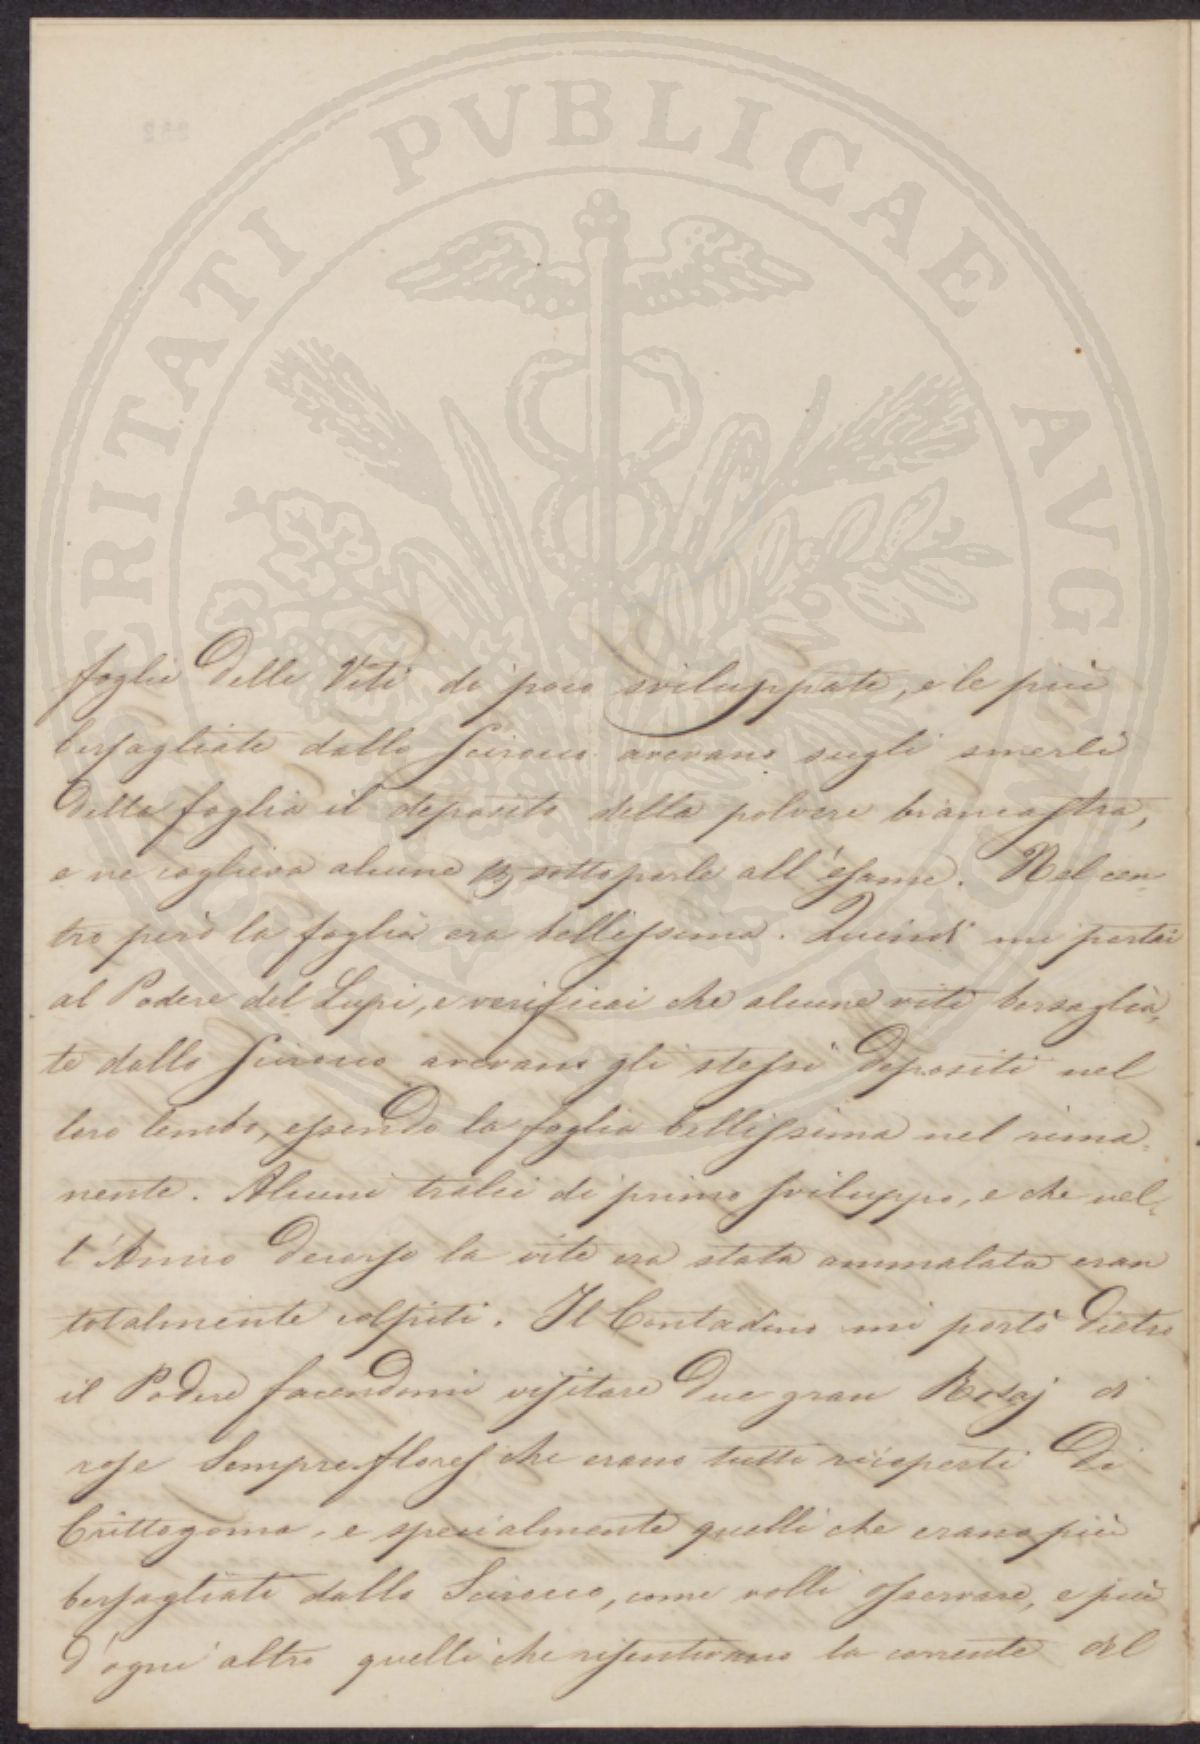 PROSPERITATI PVBLICAE AVGENDAE
foglie delle Viti di poco sviluppate, e le più
bersagliate dallo Scirocco avevano sugli smerli
della foglia il deposito della polvere biancastra,
e ne coglieva alcune p sottoporle all'esame. Nel cen-
tro però la foglia era bellissima. Quindi mi portai
al Podere del Lupi, e verificai che alcune viti bersaglia-
te dallo Scirocco avevano gli stessi depositi nel
loro lembo, essendo la foglia bellissima nel rima-
nente. Alcuni tralci di primo sviluppo, e che nel-
l'Anno decorso la vite era stata ammalata eran
totalmente colpiti. Il Contadino mi portò dietro
il Podere facendomi visitare due gran Rosaj di
rose Sempreflores che erano tutti ricoperti di
Crittogama, e specialmente quelli che erano più
bersagliati dallo Scirocco, come volli osservare, e più
d'ogni altro quelli che risentivano la corrente del